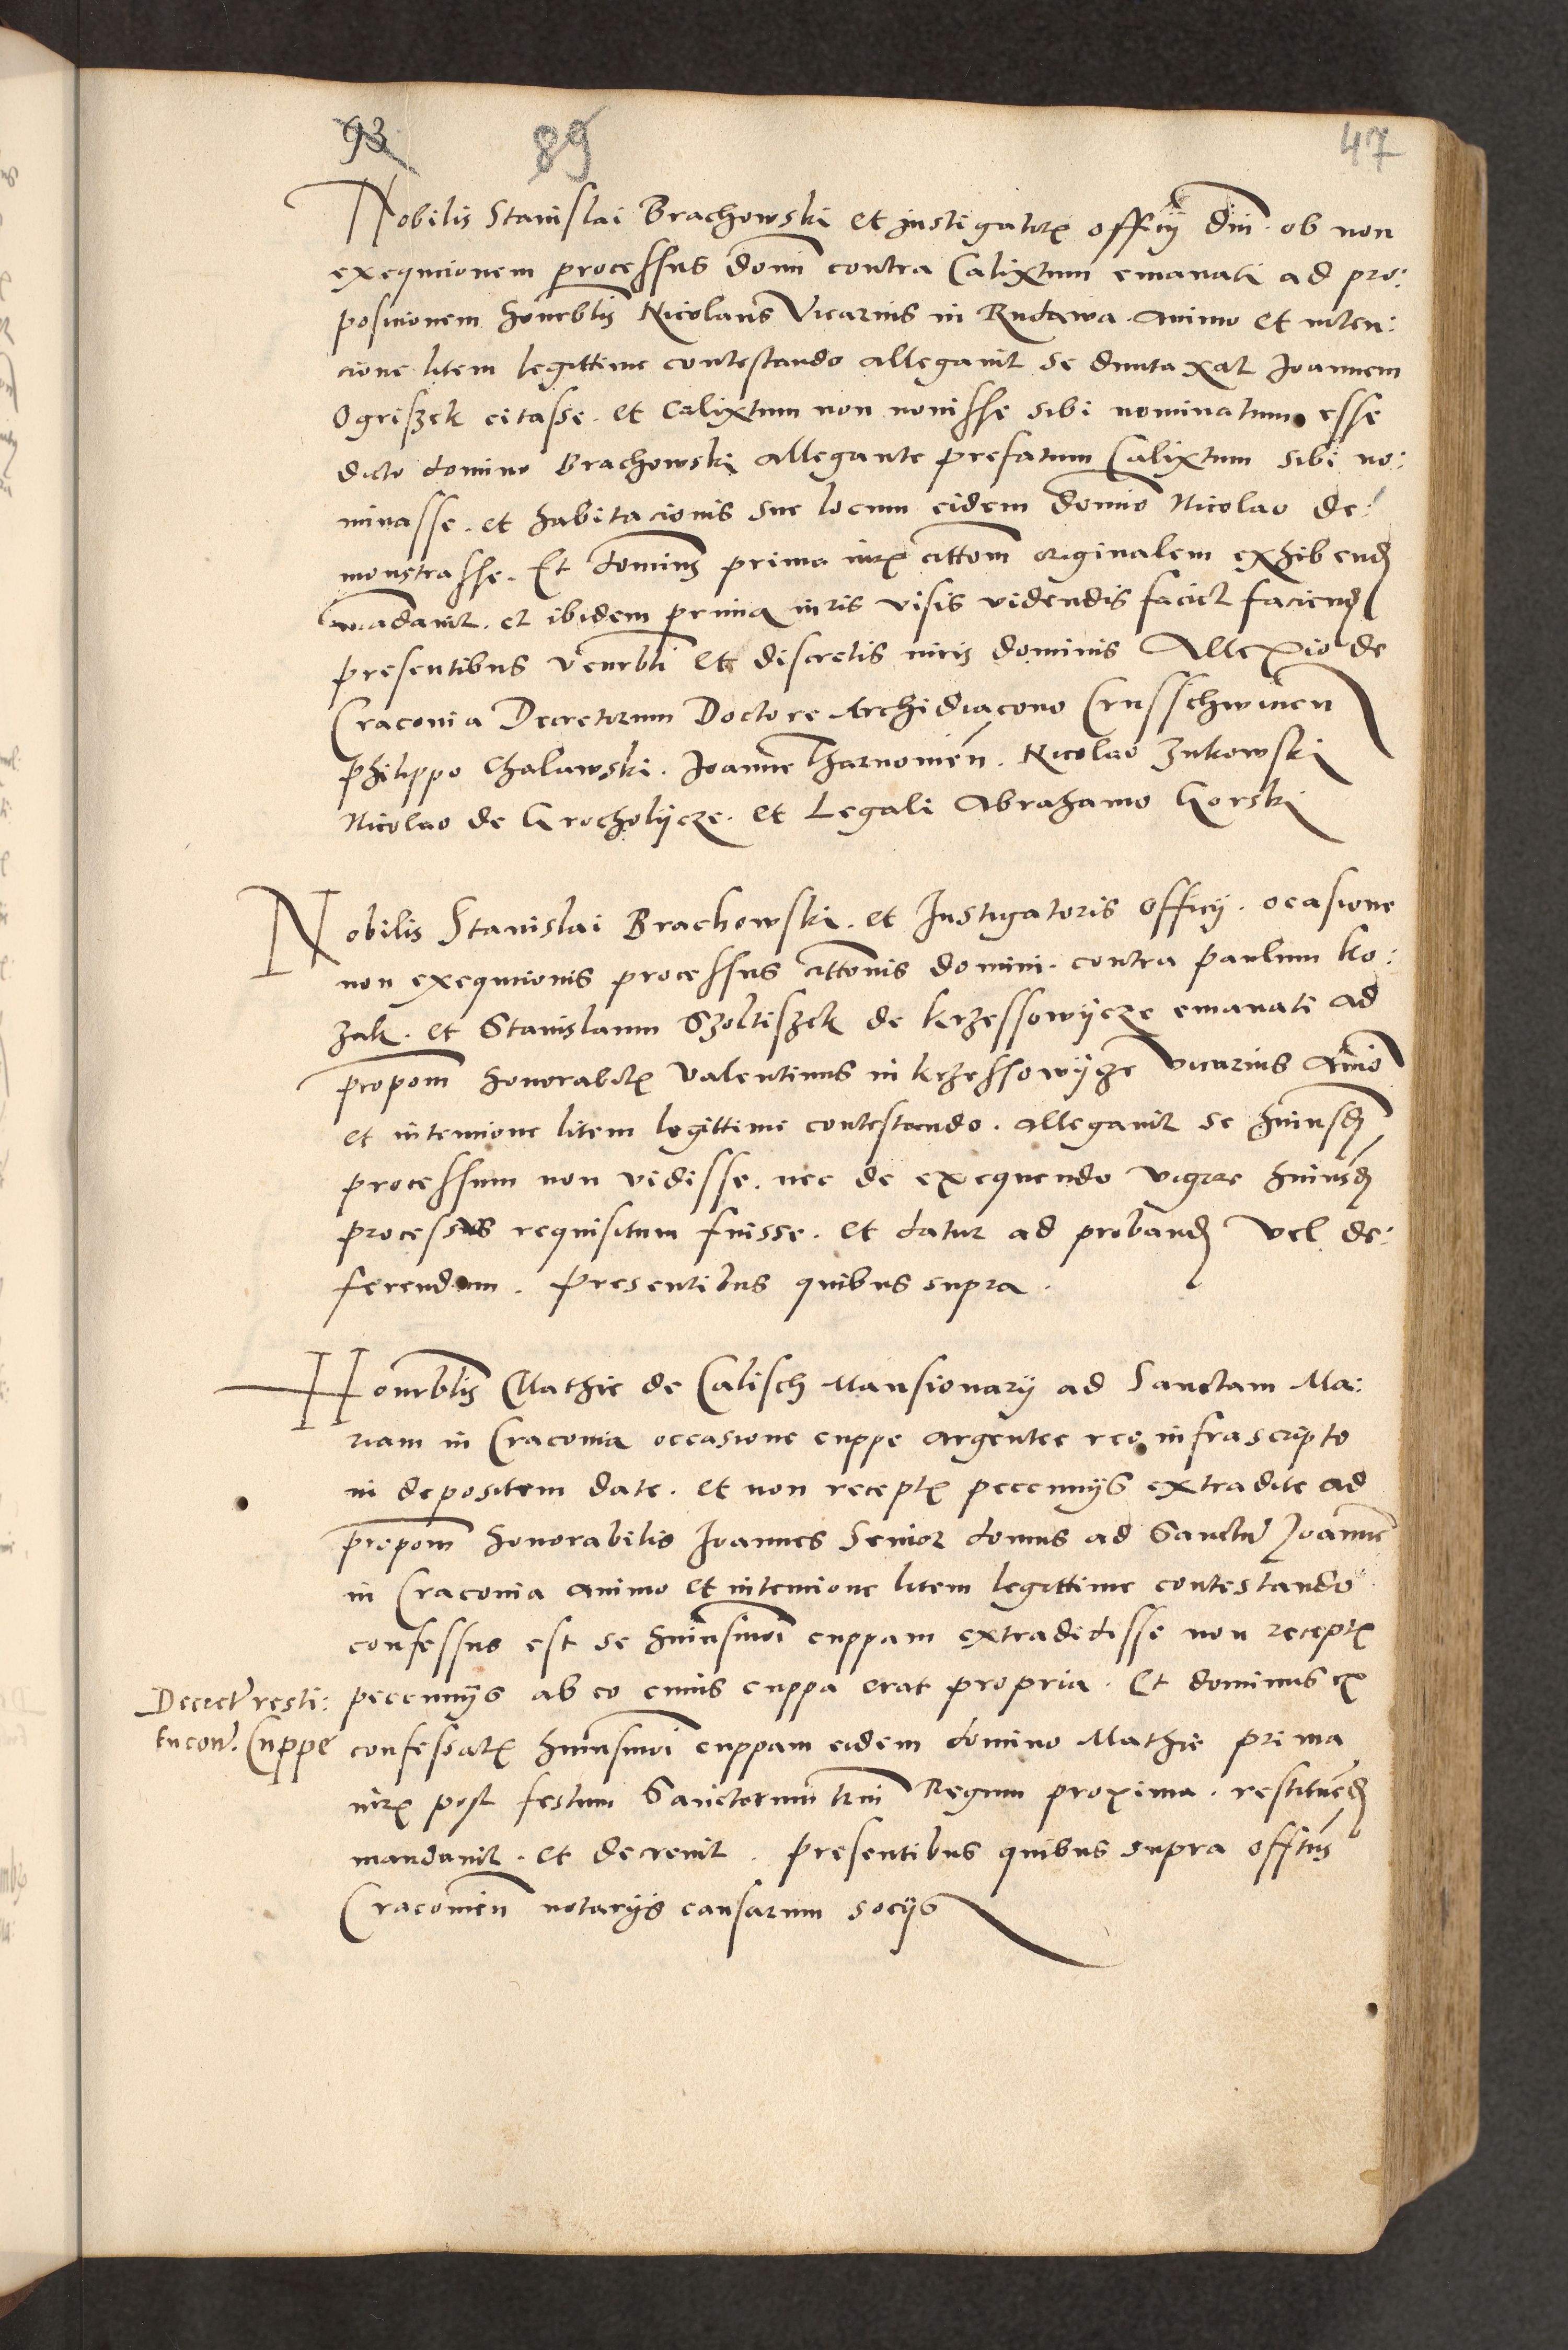 93
89
47
Nobilis Stanislai Brachowski et instigatoris officij dni. ob non
exequcionem processus domi contra Calixtum emanati ad pro:
posicionem honrblis Nicolaus Vicarius in Rudawa animo et inten:
cione litem legittime contestando allegavit se duntaxat Joannem
Ogriszek citasse. et Calixtum non novisse sibi nominatum esse
dicto domino Brachowski allegante prefatum Calixtum sibi no:
minasse. et habitacionis sue locum eidem domino Nicolao de:
monstrasse. Et dominus prima iuris cittom originalem exhibend
mandavit. et ibidem prima iuris visis videndis faciet faciend
presentibus venrbli et discretis viris dominis Allexio de
Cracovia Decretorum Doctore Archidiacono Crusschwicien
Philippo Chalawski. Joanne Tharnovien. Nicolao Zukowski
Nicolao de Grocholijcze. et Legali Abrahamo Gorski
Nobilis Stanislai Brachowski. et Instigatoris Officij. ocasione
non exequcionis processus cittonis domini. contra paulum Ko:
zak. et Stanislaum Szoltiszek de krzessowijcze emanati ad
propom honorabilis Valentinus in krzessowijcze vicarius Animo
et intencione litem legittime contestando. allegavit se huiusd
processum non vidisse. nec de exequendo vigore huiusd
processus requisitum fuisse. et datur ad proband vel de:
ferendum. Presentibus quibus supra.
Honrblis Mathie de Calisch Mansionarij ad Sanctam Ma:
riam in Cracovia occasione cuppe argentee reo infrascripto
in depositum date. et non receptis pecunijs extradite ad
propom honorabilis Joannes Senior domus ad Sanctum Joannem
in Cracovia animo et intencione litem legittime contestando
confessus est se huiusmoi cuppam extradidisse non receptis
pecunijs ab eo cuius cuppa erat propria. Et dominus ex
Decret resti:
tucon. Cuppe
confessatis huiusmoi cuppam eidem domino Mathie prima
iuris post festum Sanctorum trium Regum proxima. restituend
mandavit. et decrevit. presentibus quibus supra offtus
Cracovien notarijs causarum socijs